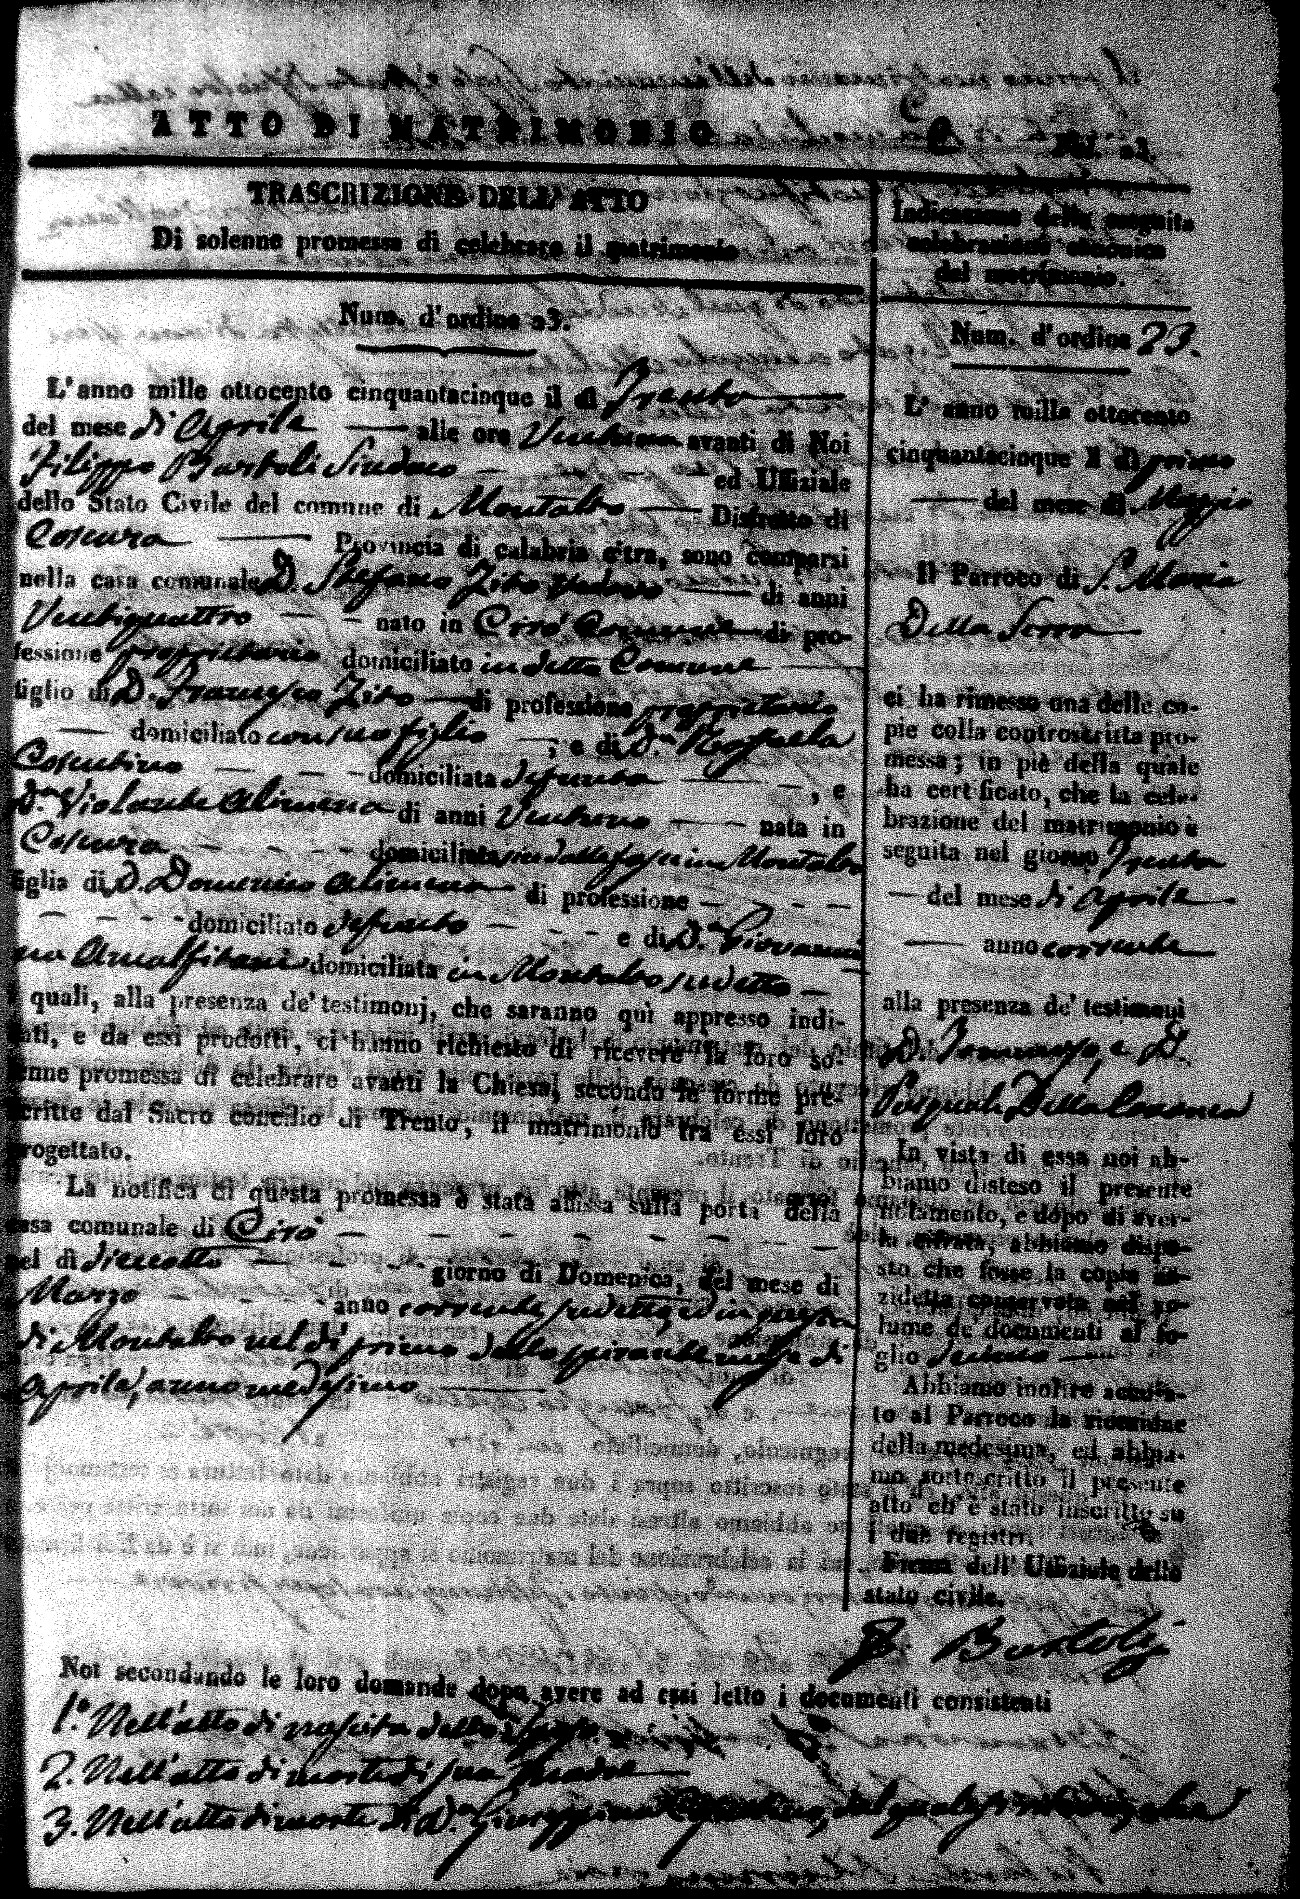 ATTO DI MATRIMONIO
TRASCRIZIONE DELL' ATTO
Di solenne promessa di celebrare il matrimonio
Num. d'ordine 23.
L'anno mille ottocento cinquantacinque il dì Trenta
del mese di Aprile alle ore Ventuna avanti di Noi
Filippo Bartoli Sindaco ed Uffiziale
dello Stato Civile del comune di Montalto Distretto di
Cosenza Provincia di calabria citra, sono comparsi
nella casa comunale D. Stefano Zito vedovo di anni
Ventiquattro nato in Cirò di pro-
fessione proprietario domiciliato in detta Comune
figlio di D. Francesco Zito di professione proprietario
domiciliato con suo figlio, e di D.a Raffaela
Cosentino domiciliata defunta, e
D.na Violante Alimena di anni Ventuno nata in
Cosenza domiciliata in Montalto
figlia di D. Domenico Alimena di professione
domiciliato defunto e di D.a Giovan-
na Amalfitani domiciliata in Montalto sudetto
i quali, alla presenza de' testimonj, che saranno quì appresso indi-
cati, e da essi prodotti, ci hanno richiesto di ricevere la loro so-
lenne promessa di celebrare avanti la Chiesa, secondo le forme pre-
scritte dal Sacro concilio di Trento, il matrimonio tra essi loro
progettato.
La notifica di questa promessa è stata affissa sulla porta della
casa comunale di Cirò
nel dì diciotto giorno di Domenica, del mese di
Marzo anno corrente sudetto, ed in questa
di Montalto nel dì primo dello spirante mese di
Aprile, anno medesimo
Indicazione della seguita
celebrazione canonica
del matrimonio.
Num. d'ordine 23.
L' anno mille ottocento
cinquantacinque il dì primo
del mese di Maggio
Il Parroco di S. Maria
Della Serra
ci ha rimesso una delle co-
pie colla controscritta pro-
messa; in piè della quale
ha certificato, che la cele-
brazione del matrimonio è
seguita nel giorno Trenta
del mese di Aprile
anno corrente
alla presenza de' testimoni
D. Tommaso, e D.
Pasquale Della Cananea
In vista di essa noi ab-
biamo disteso il presente
notamento, e dopo di aver-
la cifrata, abbiamo dispo-
sto che fosse la copia an-
zidetta conservata nel vo-
lume de' documenti al fo-
glio
Abbiamo inoltre accusa-
to al Parroco la ricezione
della medesima, ed abbia-
mo sottoscritto il presente
atto ch' è stato inscritto su
i due registri.
Firma dell' Uffiziale dello
stato civile.
F. Bartoli
Noi secondando le loro domande dopo avere ad essi letto i documenti consistenti
1.° Nell'atto di nascita dello Sposo
2. Nell'atto di morte di sua Madre
3. Nell'atto di morte di D.a Giuseppina